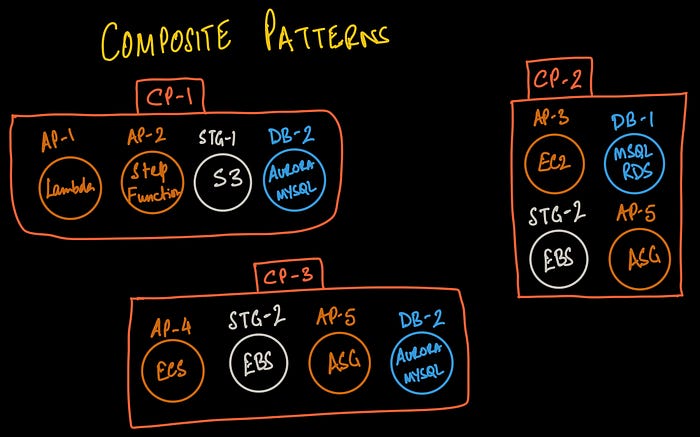 COMPOSITE PATTERNS
CP-1
AP-1 AP-2 STG-1 DB-2
Lambda
Step
Function
S3
AURORA
MYSQL
CP-2
AP-3 DB-1
EC2
MSQL
RDS
STG-2 AP-5
EBS
ASG
CP-3
AP-4 STG-2 AP-5 DB-2
ECS
EBS
ASG
AURORA
MYSQL